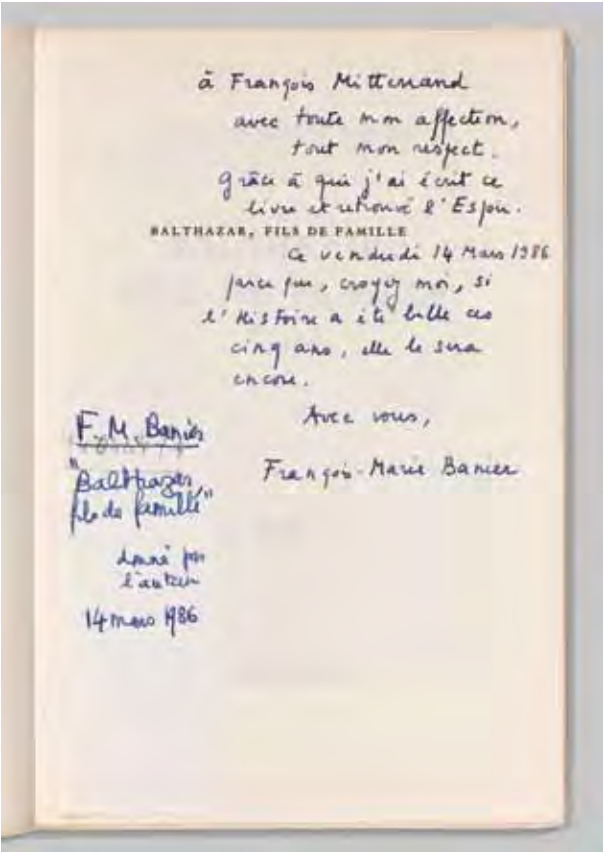 à François Mitterrand
avec toute mon affection,
tout mon respect.
Grâce à qui j'ai écrit ce
livre et retrouvé l'Espoir.
BALTHAZAR, FILS DE FAMILLE
Ce vendredi 14 Mars 1986
parce que, croyez moi, si
l'Histoire a été belle ces
cinq ans, elle le sera
encore.
Avec vous,
François-Marie Banier
F. M. Banier
"Balthazar,
fils de famille"
donné par
l'auteur
14 mars 1986